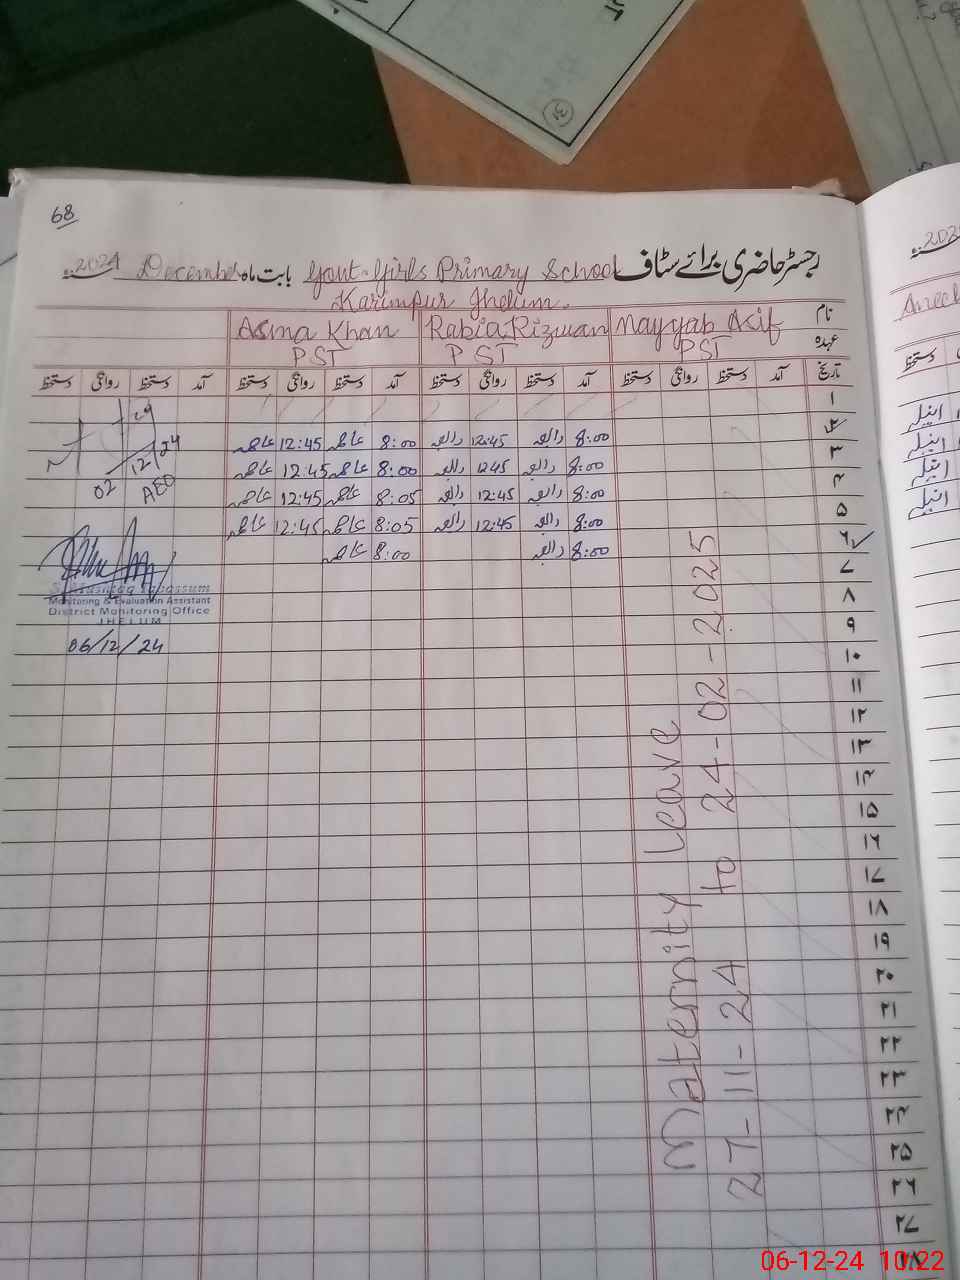 68
رجسٹر حاضری برائے سٹاف Govt. Girls Primary School بابت ماہ December 2024ء
Karimpur Jhelum.
نام Nayyab Asif Rabia Rizwan Asma Khan
عہدہ PST PST PST
تاریخ آمد دستخط روانگی دستخط آمد دستخط روانگی دستخط آمد دستخط روانگی دستخط آمد دستخط روانگی دستخط
۱
۲ 8:00 رابعہ 12:45 رابعہ 8:00 عاصمہ 12:45 عاصمہ
۳ 8:00 رابعہ 12:45 رابعہ 8:00 عاصمہ 12:45 عاصمہ
۴ 8:00 رابعہ 12:45 رابعہ 8:05 عاصمہ 12:45 عاصمہ
۵ 8:00 رابعہ 12:45 رابعہ 8:05 عاصمہ 12:45 عاصمہ
۶ 8:00 رابعہ 8:00 عاصمہ
۷
۸
۹
۱۰
۱۱
۱۲
۱۳
۱۴
۱۵
۱۶
۱۷
۱۸
۱۹
۲۰
۲۱
۲۲
۲۳
۲۴
۲۵
۲۶
۲۷
۲۸
Maternity Leave
27-11-24 to 24-02-2025
02/12/24
AEO
Monitoring & Evaluation Assistant
District Monitoring Office
JHELUM
06/12/24
انیلہ
انیلہ
انیلہ
انیلہ
06-12-24 10:22